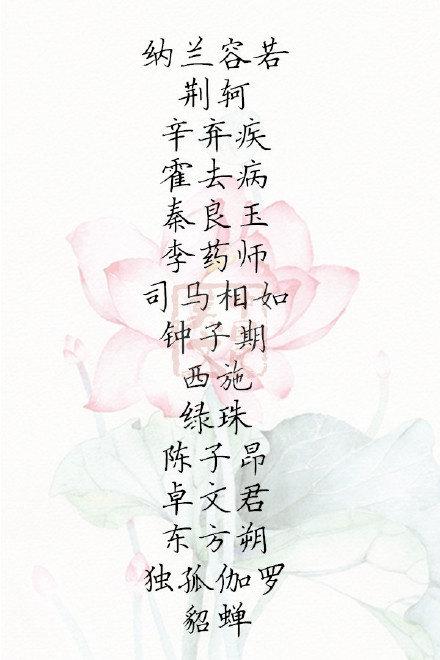 纳兰容若
荆轲
辛弃疾
霍去病
秦良玉
李药师
司马相如
钟子期
西施
绿珠
陈子昂
卓文君
东方朔
独孤伽罗
貂蝉